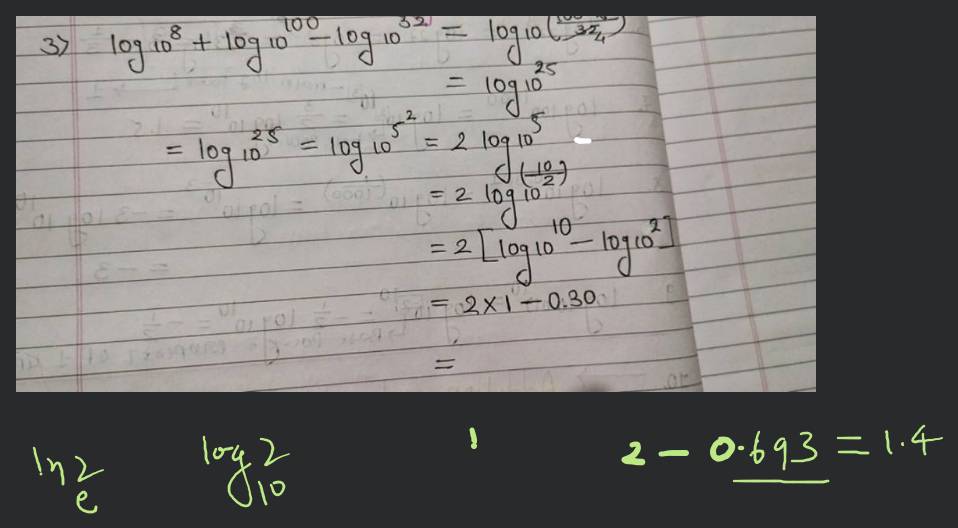 3) log 10^8 + log 10^100 - log 10^32 = log 10
= log 10^25
= log 10^25 = log 10^5^2 = 2 log 10^5
= 2 log 10^(10/2)
= 2 [log 10^10 - log 10^2]
= 2 x 1 - 0.30
=
ln 2 e log 2 10 1 2 - 0.693 = 1.4